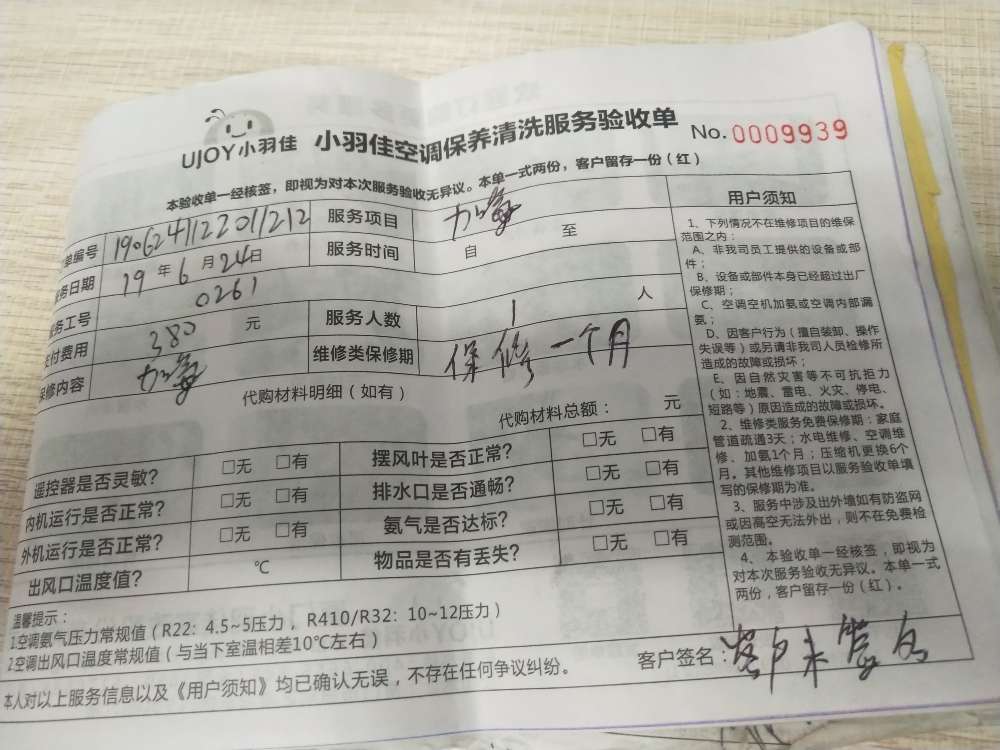 UJOY小羽佳 小羽佳空调保养清洗服务验收单 No.0009939
本验收单一经核签，即视为对本次服务验收无异议。本单一式两份，客户留存一份（红）
单编号 190624112201212 服务项目
务日期 19年6月24日 服务时间 自 至
务工号 0261 服务人数 1 人
付费用 380 元 维修类保修期 保修一个月
保修内容
代购材料明细（如有）
代购材料总额： 元
遥控器是否灵敏？ □无 □有 摆风叶是否正常？ □无 □有
内机运行是否正常？ □无 □有 排水口是否通畅？ □无 □有
外机运行是否正常？ □无 □有 氨气是否达标？ □无 □有
出风口温度值？ ℃ 物品是否有丢失？ □无 □有
用户须知
1、下列情况不在维修项目的维保
范围之内：
A、非我司员工提供的设备或部
件；
B、设备或部件本身已经超过出厂
保修期；
C、空调空机加氨或空调内部漏
氨；
D、因客户行为（擅自装卸、操作
失误等）或另请非我司人员检修所
造成的故障或损坏；
E、因自然灾害等不可抗拒力
（如：地震、雷电、火灾、停电、
短路等）原因造成的故障或损坏。
2、维修类服务免费保修期：家庭
管道疏通3天；水电维修、空调维
修、加氨1个月；压缩机更换6个
月。其他维修项目以服务验收单填
写的保修期为准。
3、服务中涉及出外墙如有防盗网
或因高空无法外出，则不在免费检
测范围。
4、本验收单一经核签，即视为
对本次服务验收无异议。本单一式
两份，客户留存一份（红）。
温馨提示：
1.空调氨气压力常规值（R22：4.5~5压力，R410/R32：10~12压力）
2.空调出风口温度常规值（与当下室温相差10℃左右）
本人对以上服务信息以及《用户须知》均已确认无误，不存在任何争议纠纷。
客户签名：客户未